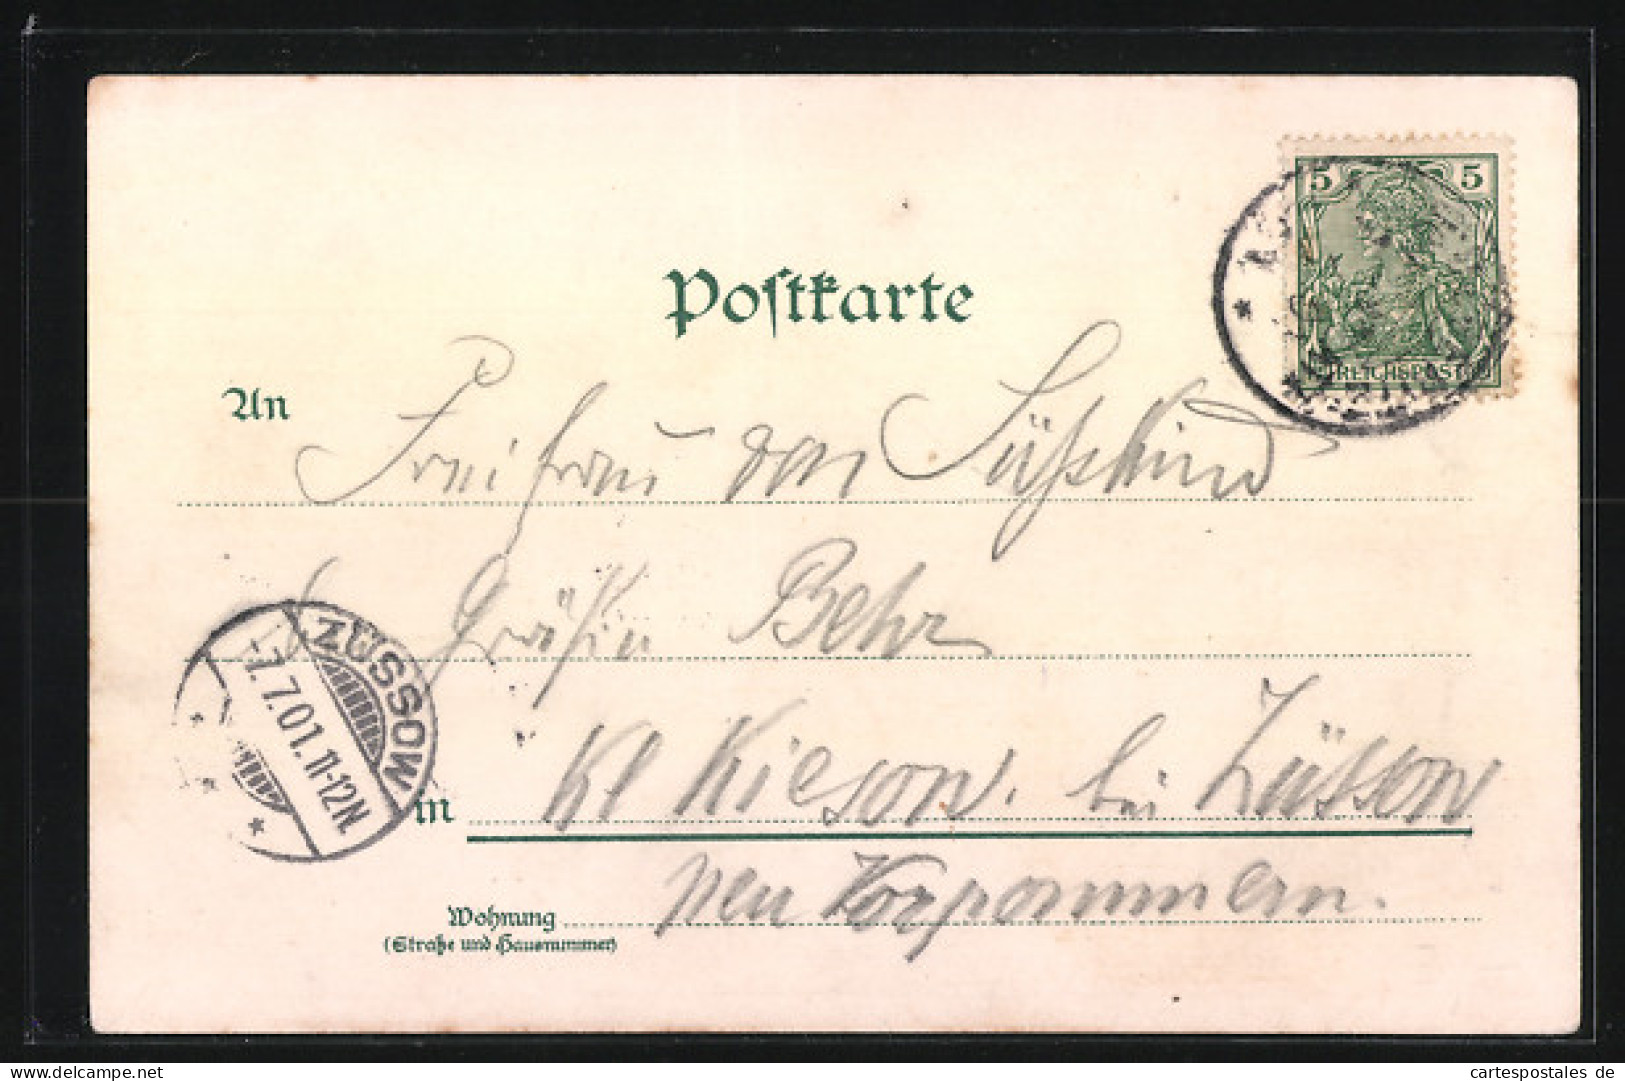 5 5
REICHSPOST
Postkarte
An Freifrau von Süßkind
Gräfin Behr
ZÜSSOW
7.7.01.11-12N
in Kl Kieson. bei Züssow
neu Vorpommern.
Wohnung
(Straße und Hausnummer)
cartespostales de